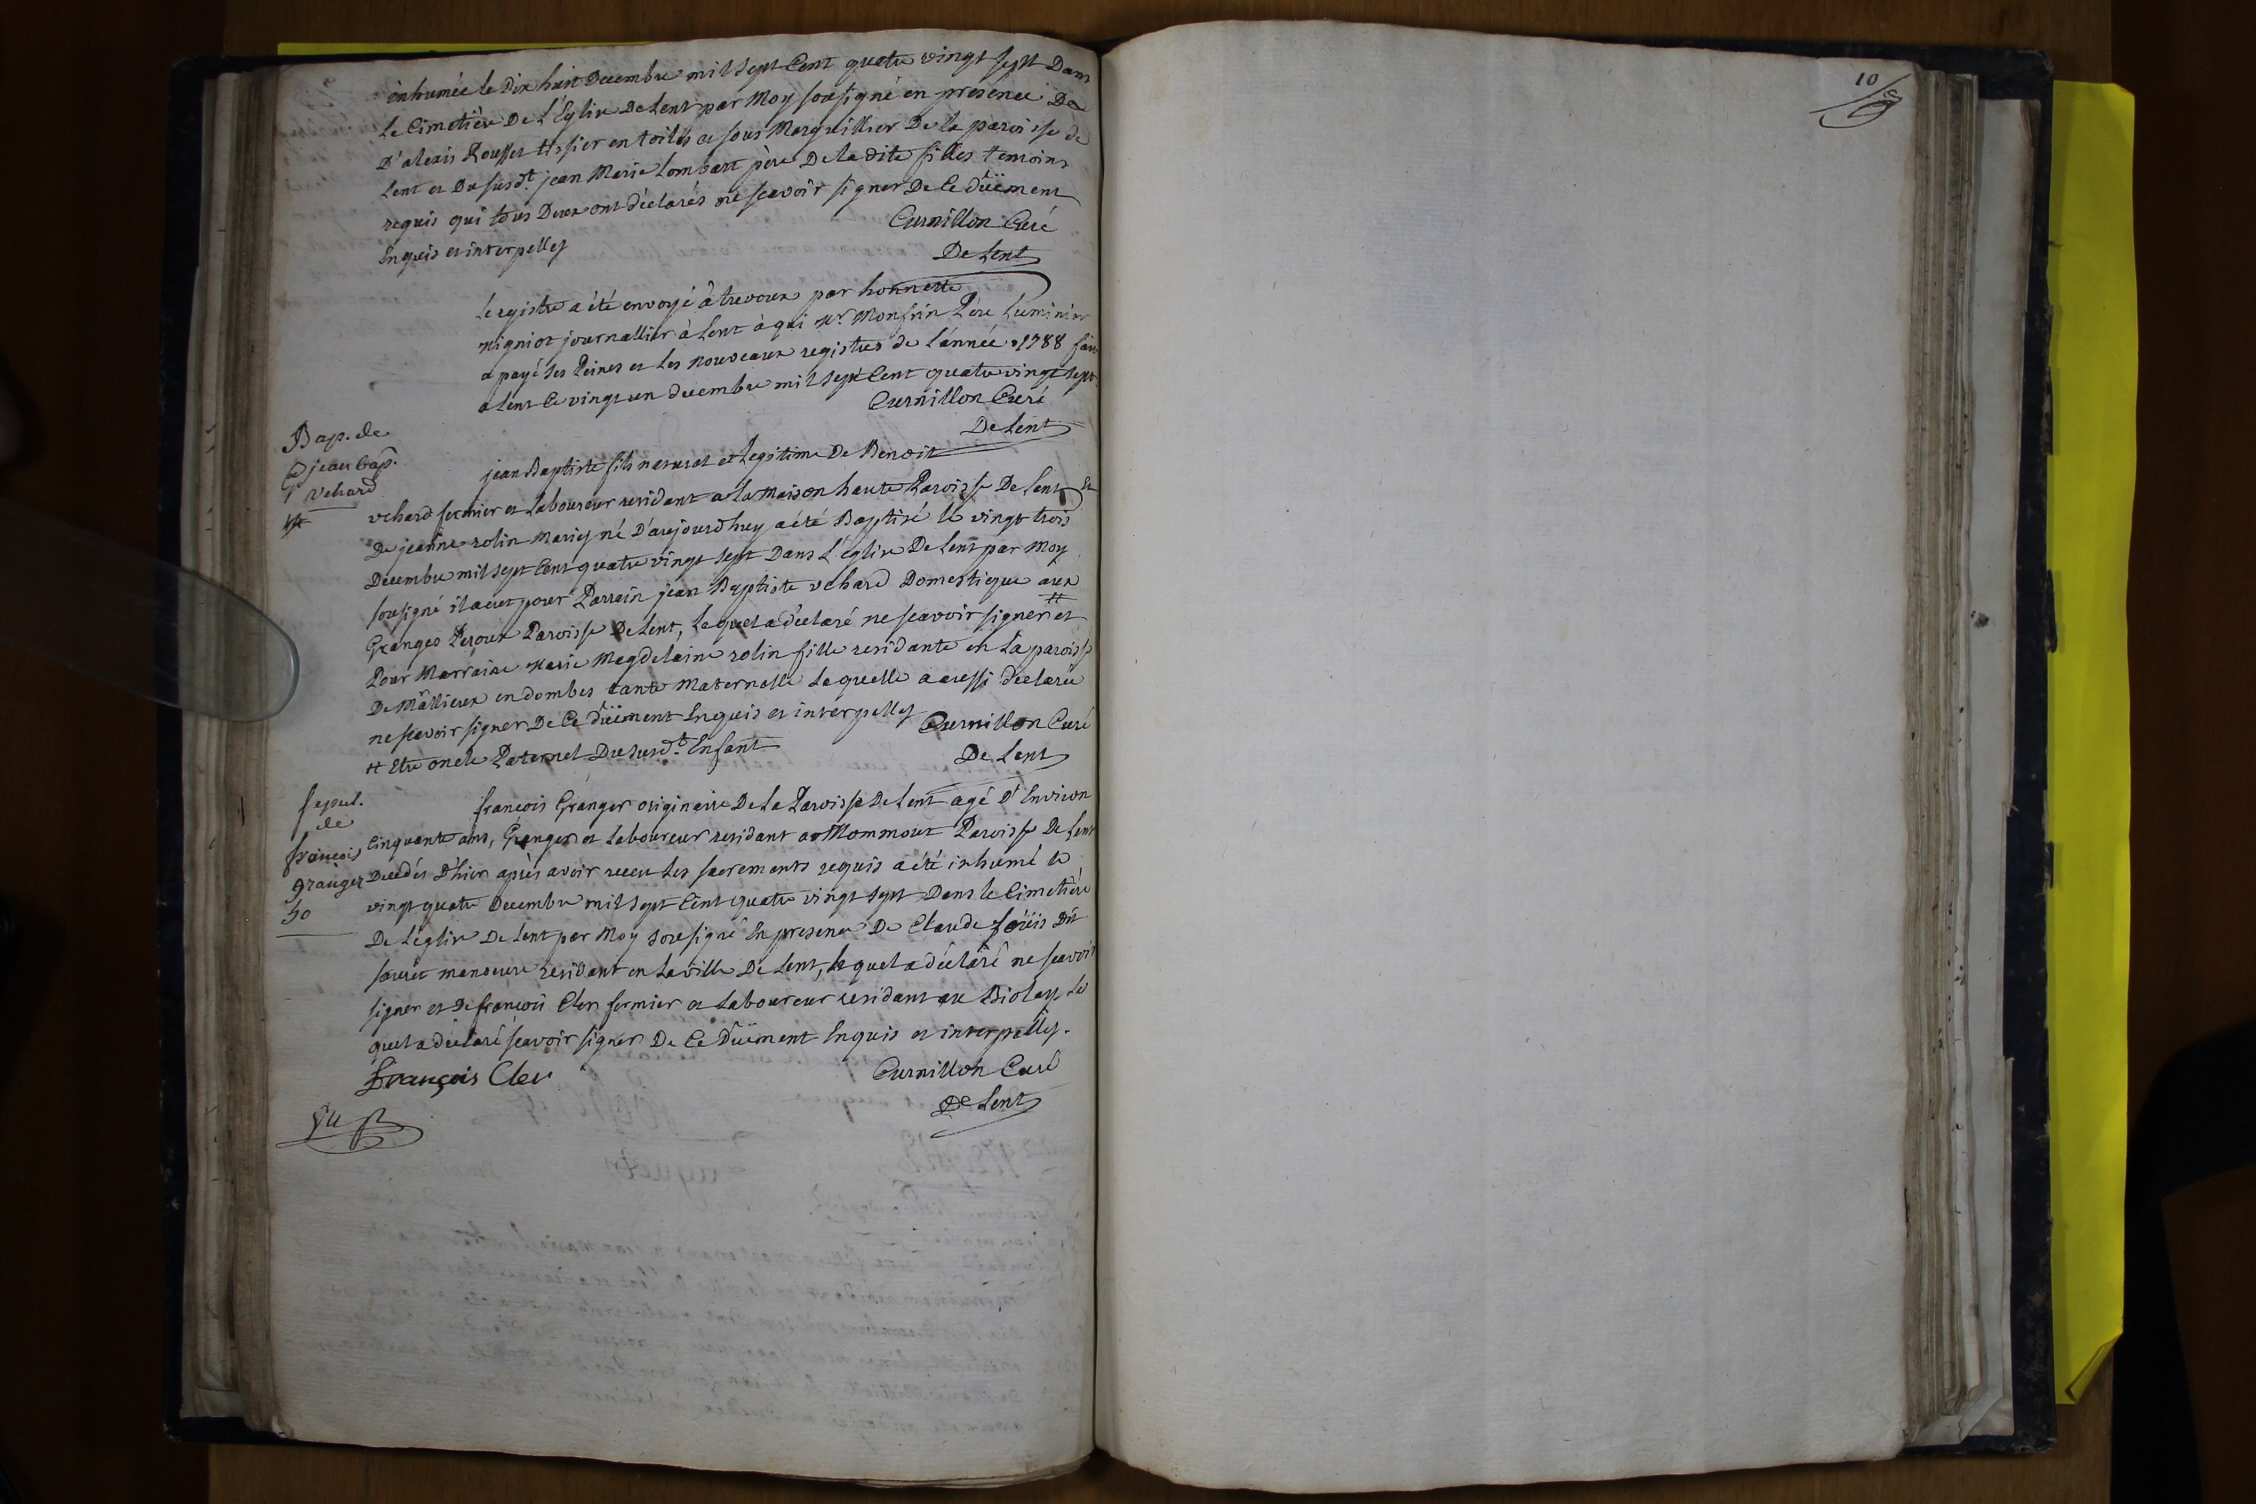 inhumée le Dix huit Decembre mil sept Cent quatre vingt sept Dans
Le Cimetière De L'Eglise De Lent par Moy sousigné en presence De
D'alexis Rousset tissier en toiles et sous Marguillier De la paroisse de
Lent et Du susd.t jean Marie Lombart père De la dite filles temoins
requis qui tous Deux ont déclarés ne scavoir signer De Ce düëment
Enquis et interpellés
Curnillon Curé
De Lent
Le registre a été envoyé à trevoux par honnette
migniot journallier à Lent à qui Mr Monfrin Père Luminier
a payé ses Peines et Les nouveaux registres de L'année 1788 fait
a Lent Ce vingt un decembre mil sept Cent quatre vingt sept
Curnillon Curé
De Lent
Bap. de
jean bap.
Vchard
jean Baptiste fils naturel et Legitime De Benoit
vchard fermier et Laboureur residant a La Maison haute Paroisse De Lent Et
De jeanne rolin Mariés né D'aujourd'huy a été Baptisé le vingt trois
Decembre mil sept Cent quatre vingt sept Dans L'église De Lent par Moy
sousigné il a eut pour Parrain jean Baptiste vchard Domestique aux
Granges Peroux Paroisse De Lent, Lequel a déclaré ne scavoir signer # et
Pour Marraine Marie Magdelaine rolin fille residante en La paroisse
De Marlieux en dombes tante Maternelle Laquelle a aussi déclarée
ne scavoir signer De Ce düëment Enquis et interpellés
Curnillon Curé
# Etre oncle Paternel Du susd.t Enfant
De Lent
sepul.
de
françois
granger
50
françois Granger originaire De La Paroisse De Lent agé D'Environ
Cinquante ans, Granger et Laboureur residant a Mommour Paroisse De Lent
Decedés D'hier après avoir receu Les sacrements requis a été inhumé le
vingt quatre Decembre mil sept Cent quatre vingt sept Dans le Cimetière
De L'église De Lent par Moy sousigné En presence De Claude Loüis Dit
manoeuvre residant en La ville De Lent, Lequel a déclaré ne scavoir
signer et De françois Cler fermier et Laboureur residant au Biolay Le
quel a déclaré scavoir signer De Ce Düëment Enquis et interpellés.
François Cler
Curnillon Curé
De Lent
10